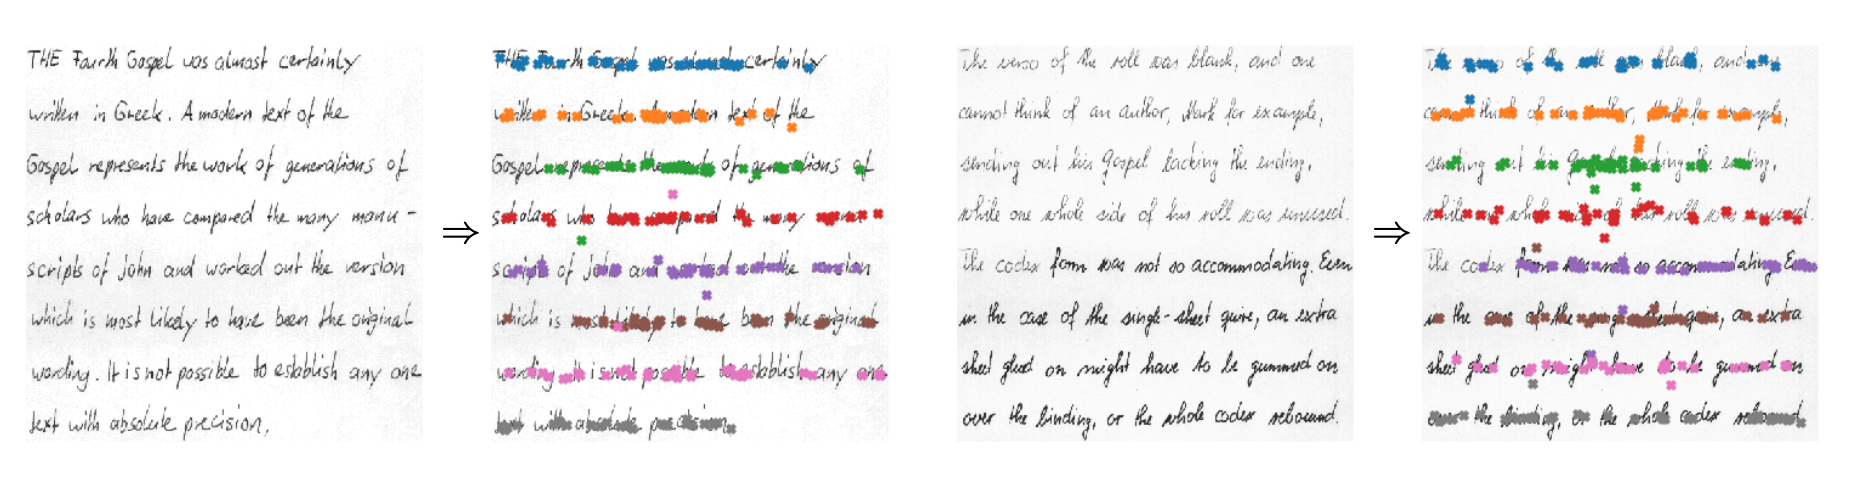 THE Fourth Gospel was almost certainly
written in Greek. A modern text of the
Gospel represents the work of generations of
scholars who have compared the many manu-
scripts of John and worked out the version
which is most likely to have been the original
wording. It is not possible to establish any one
text with absolute precision.
⇒
THE Fourth Gospel was almost certainly
written in Greek. A modern text of the
Gospel represents the work of generations of
scholars who have compared the many manu-
scripts of John and worked out the version
which is most likely to have been the original
wording. It is not possible to establish any one
text with absolute precision.
The verso of the roll was blank, and one
cannot think of an author, Mark for example,
sending out his Gospel lacking the ending,
while one whole side of his roll was unused.
The codex form was not so accommodating. Even
in the case of the single-sheet quire, an extra
sheet glued on might have to be gummed on
over the binding, or the whole codex rebound.
⇒
The verso of the roll was blank, and one
cannot think of an author, Mark for example,
sending out his Gospel lacking the ending,
while one whole side of his roll was unused.
The codex form was not so accommodating. Even
in the case of the single-sheet quire, an extra
sheet glued on might have to be gummed on
over the binding, or the whole codex rebound.